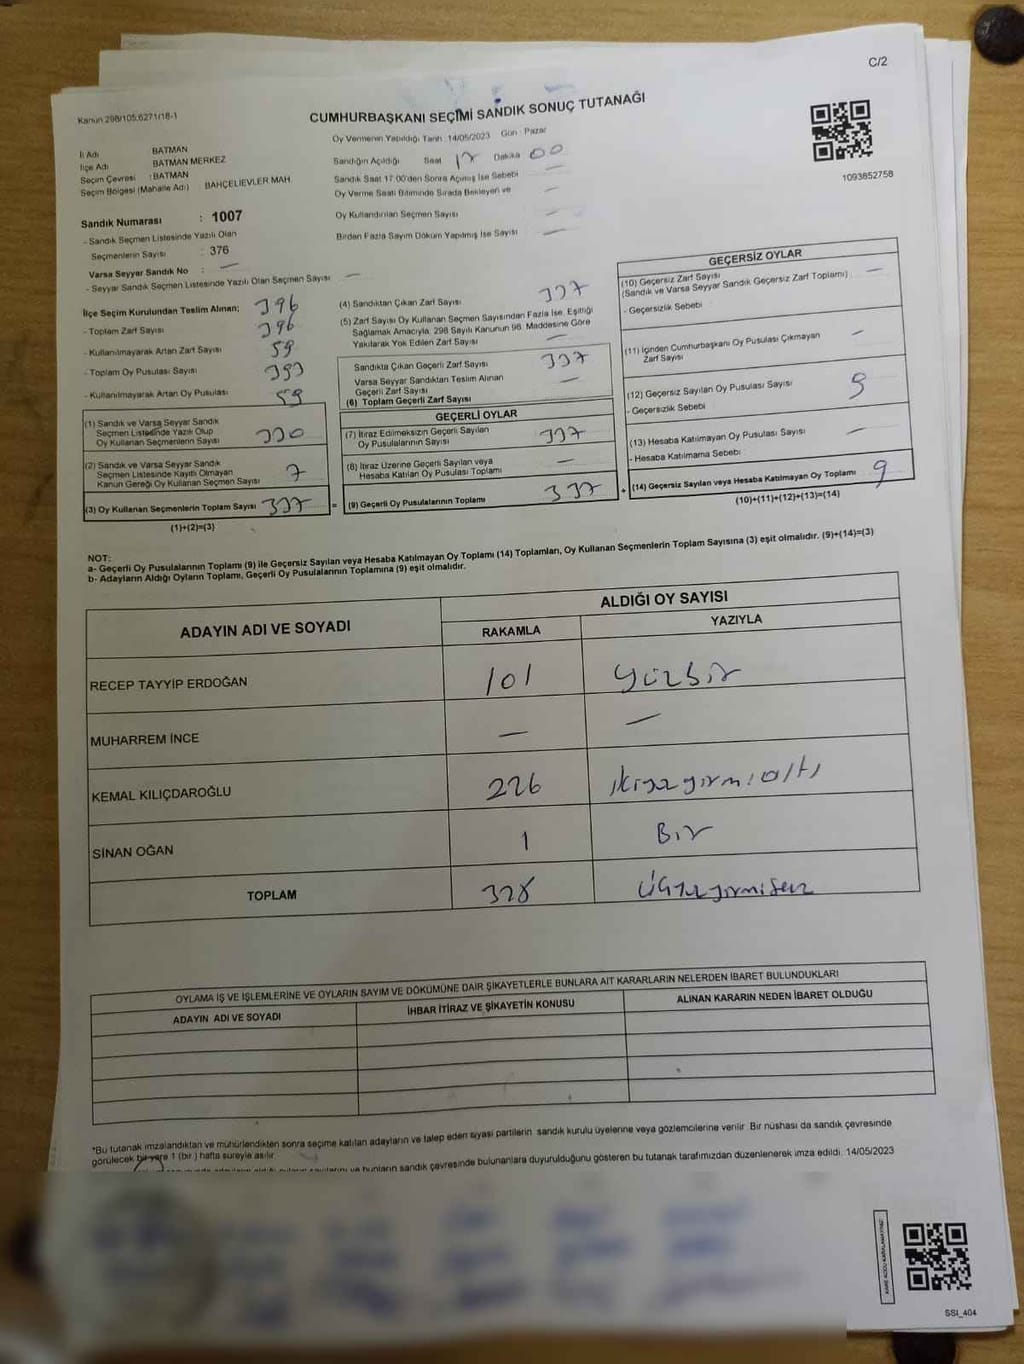 C/2
Kanun 298/105.6271/18-1
CUMHURBAŞKANI SEÇİMİ SANDIK SONUÇ TUTANAĞI
Oy Vermenin Yapıldığı Tarih :14/05/2023 Gün Pazar
İl Adı BATMAN
İlçe Adı BATMAN MERKEZ
Seçim Çevresi : BATMAN
Seçim Bölgesi (Mahalle Adı) BAHÇELİEVLER MAH.
Sandığın Açıldığı Saat 17 Dakika 00
Sandık Saat 17:00'den Sonra Açılmış İse Sebebi —
Oy Verme Saati Bitiminde Sırada Bekleyen ve
Oy Kullandırılan Seçmen Sayısı —
Birden Fazla Sayım Döküm Yapılmış İse Sayısı —
1093852758
Sandık Numarası : 1007
- Sandık Seçmen Listesinde Yazılı Olan
Seçmenlerin Sayısı : 376
Varsa Seyyar Sandık No : —
- Seyyar Sandık Seçmen Listesinde Yazılı Olan Seçmen Sayısı —
İlçe Seçim Kurulundan Teslim Alınan; 396
- Toplam Zarf Sayısı 396
- Kullanılmayarak Artan Zarf Sayısı 59
- Toplam Oy Pusulası Sayısı
- Kullanılmayarak Artan Oy Pusulası 59
(1) Sandık ve Varsa Seyyar Sandık
Seçmen Listesinde Yazılı Olup
Oy Kullanan Seçmenlerin Sayısı 330
(2) Sandık ve Varsa Seyyar Sandık
Seçmen Listesinde Kayıtlı Olmayan
Kanun Gereği Oy Kullanan Seçmen Sayısı 7
(3) Oy Kullanan Seçmenlerin Toplam Sayısı 337
(1)+(2)=(3)
(4) Sandıktan Çıkan Zarf Sayısı 337
(5) Zarf Sayısı Oy Kullanan Seçmen Sayısından Fazla İse, Eşitliği
Sağlamak Amacıyla, 298 Sayılı Kanunun 98. Maddesine Göre
Yakılarak Yok Edilen Zarf Sayısı —
Sandıkta Çıkan Geçerli Zarf Sayısı 337
Varsa Seyyar Sandıktan Teslim Alınan
Geçerli Zarf Sayısı —
(6) Toplam Geçerli Zarf Sayısı
GEÇERLİ OYLAR
(7) İtiraz Edilmeksizin Geçerli Sayılan
Oy Pusulalarının Sayısı 337
(8) İtiraz Üzerine Geçerli Sayılan veya
Hesaba Katılan Oy Pusulası Toplamı —
= (9) Geçerli Oy Pusulalarının Toplamı 337 +
GEÇERSİZ OYLAR
(10) Geçersiz Zarf Sayısı
(Sandık ve Varsa Seyyar Sandık Geçersiz Zarf Toplamı) —
- Geçersizlik Sebebi
(11) İçinden Cumhurbaşkanı Oy Pusulası Çıkmayan
Zarf Sayısı —
(12) Geçersiz Sayılan Oy Pusulası Sayısı 9
- Geçersizlik Sebebi
(13) Hesaba Katılmayan Oy Pusulası Sayısı —
- Hesaba Katılmama Sebebi
(14) Geçersiz Sayılan veya Hesaba Katılmayan Oy Toplamı 9
(10)+(11)+(12)+(13)=(14)
NOT:
a- Geçerli Oy Pusulalarının Toplamı (9) ile Geçersiz Sayılan veya Hesaba Katılmayan Oy Toplamı (14) Toplamları, Oy Kullanan Seçmenlerin Toplam Sayısına (3) eşit olmalıdır. (9)+(14)=(3)
b- Adayların Aldığı Oyların Toplamı, Geçerli Oy Pusulalarının Toplamına (9) eşit olmalıdır.
ADAYIN ADI VE SOYADI
ALDIĞI OY SAYISI
RAKAMLA YAZIYLA
RECEP TAYYİP ERDOĞAN 101 yüzbir
MUHARREM İNCE — —
KEMAL KILIÇDAROĞLU 226 ikiyüzyirmialtı
SİNAN OĞAN 1 Bir
TOPLAM 328
OYLAMA İŞ VE İŞLEMLERİNE VE OYLARIN SAYIM VE DÖKÜMÜNE DAİR ŞİKAYETLERLE BUNLARA AİT KARARLARIN NELERDEN İBARET BULUNDUKLARI
ADAYIN ADI VE SOYADI İHBAR İTİRAZ VE ŞİKAYETİN KONUSU ALINAN KARARIN NEDEN İBARET OLDUĞU
*Bu tutanak imzalandıktan ve mühürlendikten sonra seçime katılan adayların ve talep eden siyasi partilerin sandık kurulu üyelerine veya gözlemcilerine verilir. Bir nüshası da sandık çevresinde
görülecek bir yere 1 (bir) hafta süreyle asılır.
ve bunların sandık çevresinde bulunanlara duyurulduğunu gösteren bu tutanak tarafımızdan düzenlenerek imza edildi. 14/05/2023
SSI_404